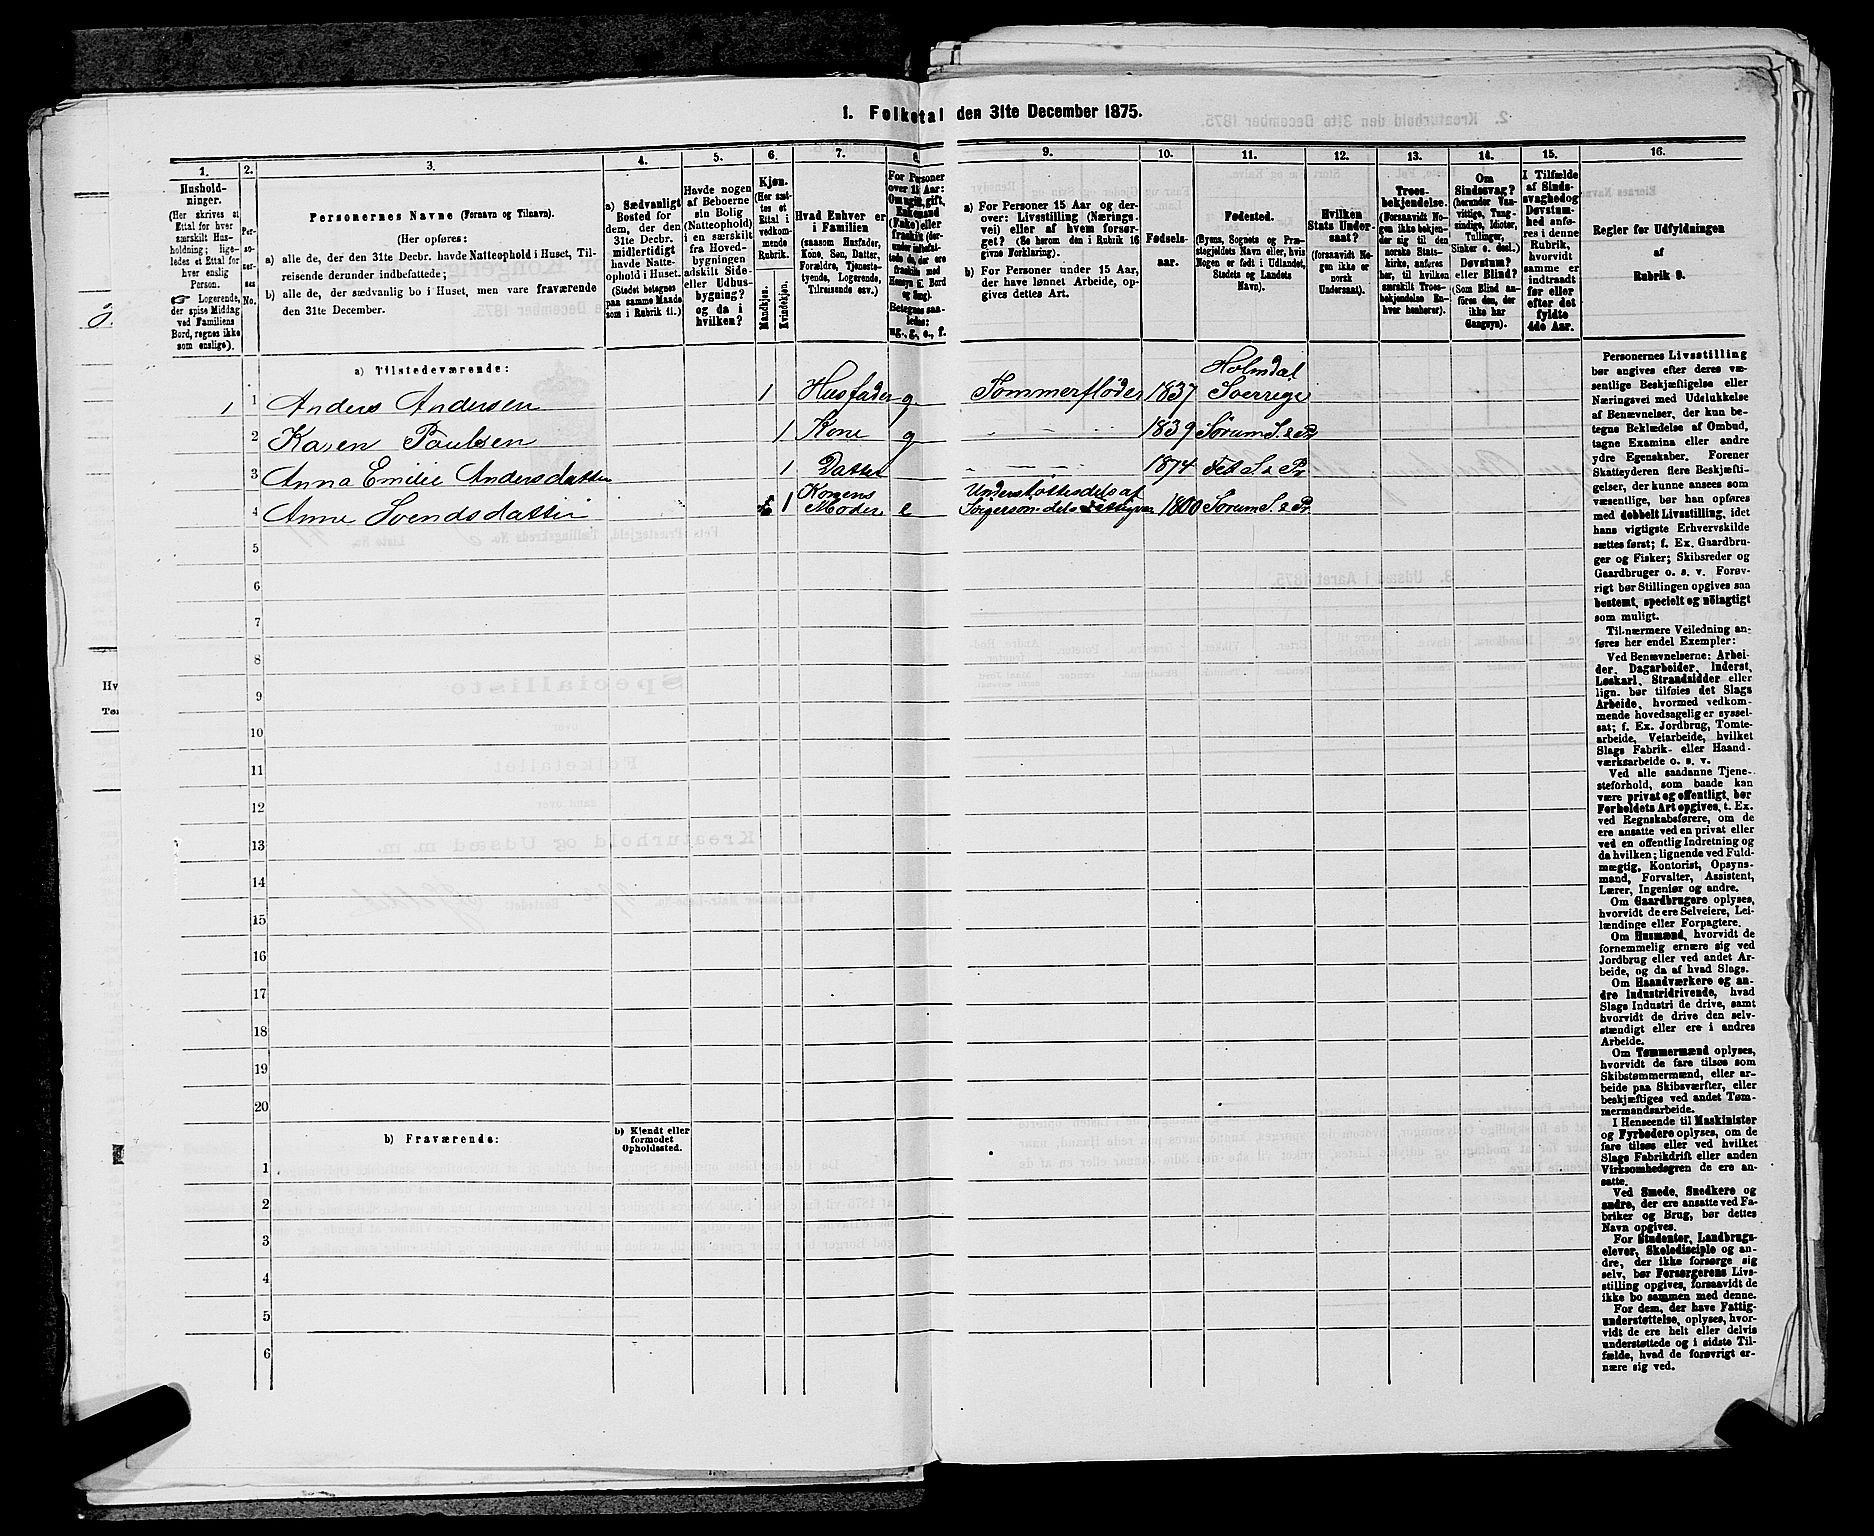 1. Folketal den 31te December 1875.
1. 2. 3. 4. 5. 6. 7. 8. 9. 10. 11. 12. 13. 14. 15. 16.
Hushold-
ninger.
(Her skrives et
Ettal for hver
særskilt Hus-
holdning; lige-
ledes et Ettal for
hver enslig
Person.
☞ Logerende,
der spise Middag
ved Familiens
Bord, regnes ikke
som enslige).
Per-
so-
ner-
nes
No.
Personernes Navne (Fornavn og Tilnavn).
(Her opføres:
a) alle de, der den 31te Decbr. havde Natteophold i Huset, Til-
reisende derunder indbefattede;
b) alle de, der sædvanlig bo i Huset, men vare fraværende
den 31te December.
a) Sædvanligt
Bosted for
dem, der den
31te Decbr.
midlertidigt
havde Natte-
ophold i Huset.
(Stedet betegnes
paa samme Maade
som i Rubrik 11.)
Havde nogen
af Beboerne
sin Bolig
(Natteophold)
i en særskilt
fra Hoved-
bygningen
adskilt Side-
eller Udhus-
bygning?
og da i
hvilken?
Kjøn.
(Her sæt-
tes et
Ettal i
vedkom-
mende
Rubrik.
Mandkjøn.
Kvindekjøn.
Hvad Enhver er
i Familien
(saasom Husfader,
Kone, Søn, Datter,
Forældre, Tjeneste-
tyende, Logerende,
Tilreisende osv.)
For Personer
over 15 Aar:
Om ugift, gift,
Enkemand
(Enke) eller
fraskilt (der-
under indbefat-
tede de, der ere
fraskilte med
Hensyn t. Bord
og Seng).
Betegnes saa-
ledes:
ug., g., e., f.
a) For Personer 15 Aar og der-
over: Livsstilling (Nærings-
vei) eller af hvem forsør-
get? (Se herom den i Rubrik 16
givne Forklaring).
b) For Personer under 15 Aar,
der have lønnet Arbeide, op-
gives dettes Art.
Fødsels-
aar.
Fødested.
(Byens, Sognets og Præ-
stegjeldets Navn eller, hvis
Nogen er født i Udlandet,
Stedets og Landets
Navn).
Hvilken
Stats Under-
saat?
(forsaavidt No-
gen ikke er
norsk
Undersaat).
Troes-
bekjendelse.
(Forsaavidt No-
gen ikke bekjen-
der sig til den
norske Stats-
kirke, anføres
her, til hvilken
særskilt Troes-
bekjendelse En-
hver henhører).
Om
Sindssvag?
(herunder Van-
vittige, Tung-
sindige, Idioter,
Tullinger,
Sinker o. desl.)
Døvstum?
eller Blind?
(Som Blind an-
føres den, der
ikke har
Gangsyn).
I Tilfælde
af Sinds-
svaghed og
Døvstum-
hed anfø-
res i denne
Rubrik,
hvorvidt
samme er
indtraadt
før eller
efter det
fyldte
4de Aar.
Regler for Udfyldningen
af
Rubrik 9.
a) Tilstedeværende:
Holmdal
1 1 Anders Andersen 1 Husfader g Tommerfløder 1837 Sverrige
2 Karen Paulsen 1 Kone g - - - - 1839 Sørum S. & Pr
3 Anna Emilie Andersdatter 1 Datter - - - - 1874 Fet S & Pr
Konens Understøttes dels af
4 Anne Svendsdatter 1 Moder e 1800 Sørum S. & Pr.
5
6
7
8
9
10
11
12
13
14
15
16
17
18
19
20
b) Fraværende:
b) Kjendt eller
formodet
Opholdssted.
1
2
3
4
5
6
Personernes Livsstilling
bør angives efter deres væ-
sentlige Beskjæftigelse eller
Næringsvei med Udelukkelse
af Benævnelser, der kun be-
tegne Beklædelse af Ombud,
tagne Examina eller andre
ydre Egenskaber. Forener
Skatteyderen flere Beskjæfti-
gelser, der kunne ansees som
væsentlige, bør han opføres
med dobbelt Livsstilling, idet
hans vigtigste Erhvervskilde
sættes først; f. Ex. Gaardbru-
ger og Fisker; Skibsreder og
Gaardbruger o. s. v. Forøv-
rigt bør Stillingen opgives saa
bestemt, specielt og nöiagtigt
som muligt.
Til nærmere Veiledning an-
føres her endel Exempler:
Ved Benævnelserne: Arbei-
der, Dagarbeider, Inderst,
Løskarl, Strandsidder eller
lign. bør tilføies det Slags
Arbeide, hvormed vedkom-
mende hovedsagelig er syssel-
sat; f. Ex. Jordbrug, Tomte-
arbeide, Veiarbeide, hvilket
Slags Fabrik- eller Haand-
værksarbeide o. s. v.
Ved alle saadanne Tjene-
steforhold, som baade kan
være privat og offentligt, bør
Forholdets Art opgives, t. Ex.
ved Regnskabsførere, om de
ere ansatte ved en privat eller
ved en offentlig Indretning og
da hvilken; lignende ved Fuld-
mægtig, Kontorist, Opsyns-
mand, Forvalter, Assistent,
Lærer, Ingeniør og andre.
Om Gaardbrugere oplyses,
hvorvidt de ere Selveiere, Lei-
lændinge eller Forpagtere.
Om Husmænd, hvorvidt de
fornemmelig ernære sig ved
Jordbrug eller ved andet Ar-
beide, og da af hvad Slags.
Om Haandværkere og an-
dre Industridrivende, hvad
Slags Industri de drive, samt
hvorvidt de drive den selv-
stændigt eller ere i andres
Arbeide.
Om Tømmermænd oplyses,
hvorvidt de fare tilsøs som
Skibstømmermænd, eller ar-
beide paa Skibsværfter, eller
beskjæftiges ved andet Tøm-
mermandsarbeide.
I Henseende til Maskinister
og Fyrbødere oplyses, om de
fare tilsøs eller ved hvilket
Slags Fabrikdrift eller anden
Virksomhedsgren de ere an-
satte.
Ved Smede, Snedkere og
andre, der ere ansatte ved Fa-
briker og Brug, bør dettes
Navn opgives.
For Studenter, Landbrugs-
elever, Skoledisciple og an-
dre, der ikke forsørge sig
selv, bør Forsørgerens Livs-
stilling opgives, forsaavidt de
ikke bo sammen med denne.
For dem, der have Fattig-
understøttelse, oplyses, hvor-
vidt de ere helt eller delvis
understøttede og i sidste Til-
fælde, hvad de forøvrigt er-
nære sig ved.